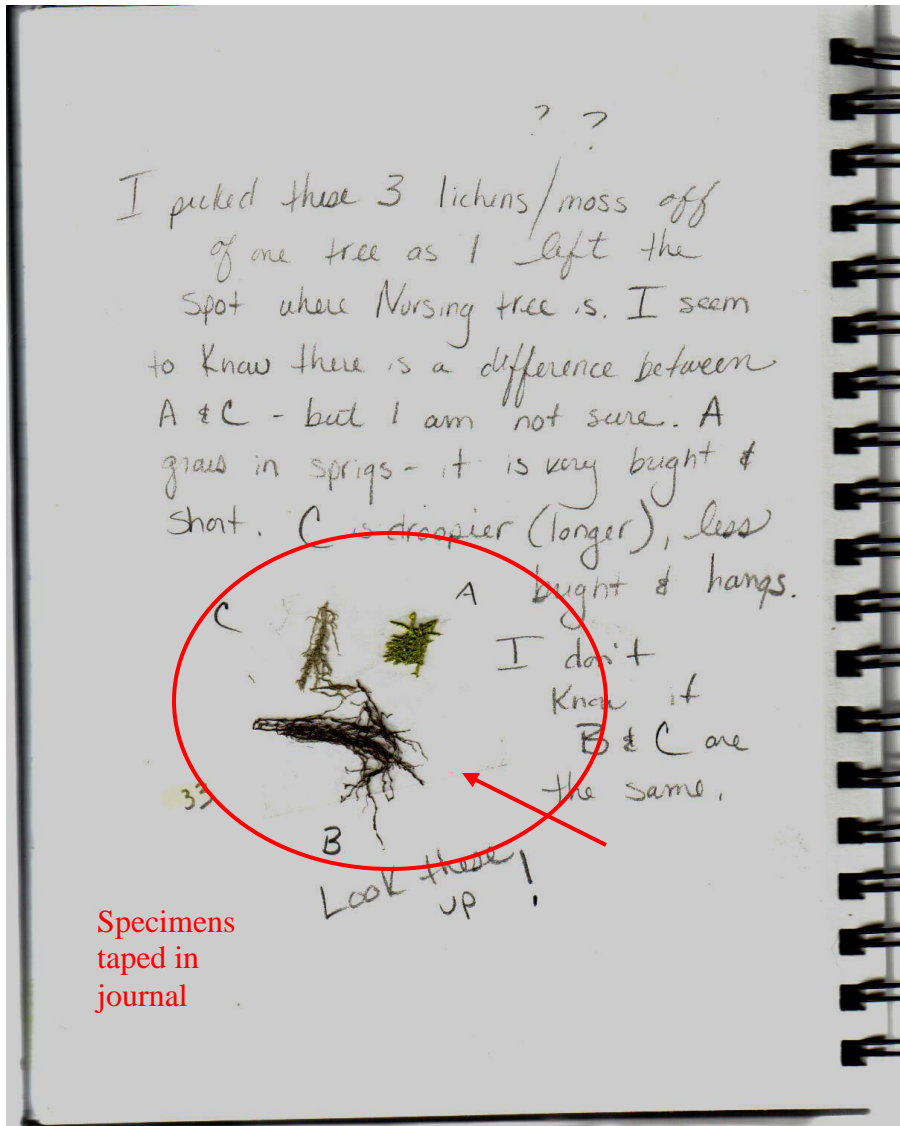 ? ?
I picked these 3 lichens/moss off
of one tree as I left the
spot where Nursing tree is. I seem
to know there is a difference between
A & C - but I am not sure. A
grows in sprigs - it is very bright &
short. C is droopier (longer), less
bright & hangs.
C
A
I don't
know if
B & C are
the same.
33
B
Look these
up!
Specimens
taped in
journal